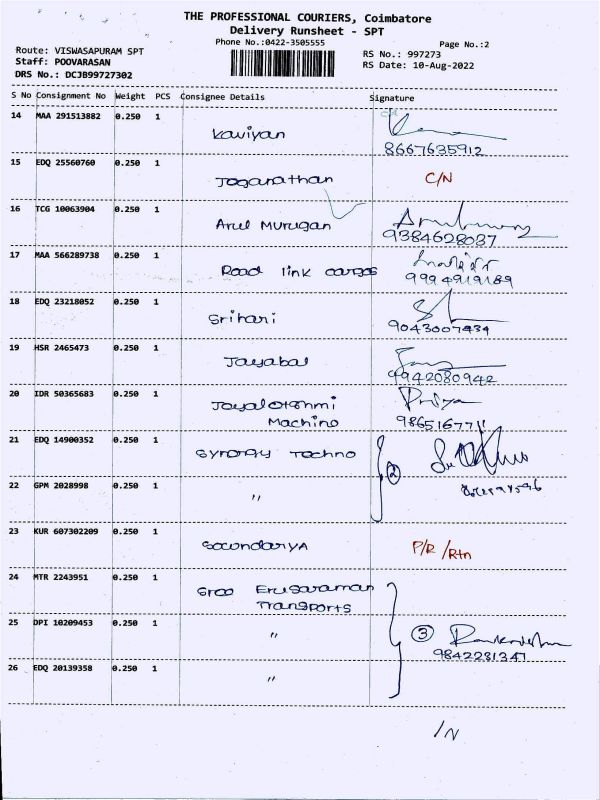 THE PROFESSIONAL COURIERS, Coimbatore
Delivery Runsheet - SPT
Phone No.:0422-3505555
Page No.:2
Route: VISWASAPURAM SPT
RS No.: 997273
Staff: POOVARASAN
RS Date: 10-Aug-2022
DRS No.: DCJB99727302
S No Consignment No Weight PCS Consignee Details Signature
14 MAA 291513882 0.250 1
Kaviyan
8667635912
15 EDQ 25560760 0.250 1
Joganathan C/N
16 TCG 10063904 0.250 1
Arul Murugan
9384628037
17 MAA 566289738 0.250 1
Road link cargos
9994919189
18 EDQ 23218052 0.250 1
Srihari
9043007434
19 HSR 2465473 0.250 1
Jayabal
9942080942
20 IDR 50365683 0.250 1
Priya
Machine 9865167711
21 EDQ 14900352 0.250 1
Synergy Techno
2
22 GPM 2028998 0.250 1
〃
23 KUR 607302209 0.250 1
Soundarya P/R /Rtn
24 MTR 2243951 0.250 1
Sree
Transports
25 DPI 10209453 0.250 1
〃 3
9842281347
26 EDQ 20139358 0.250 1
〃
/N